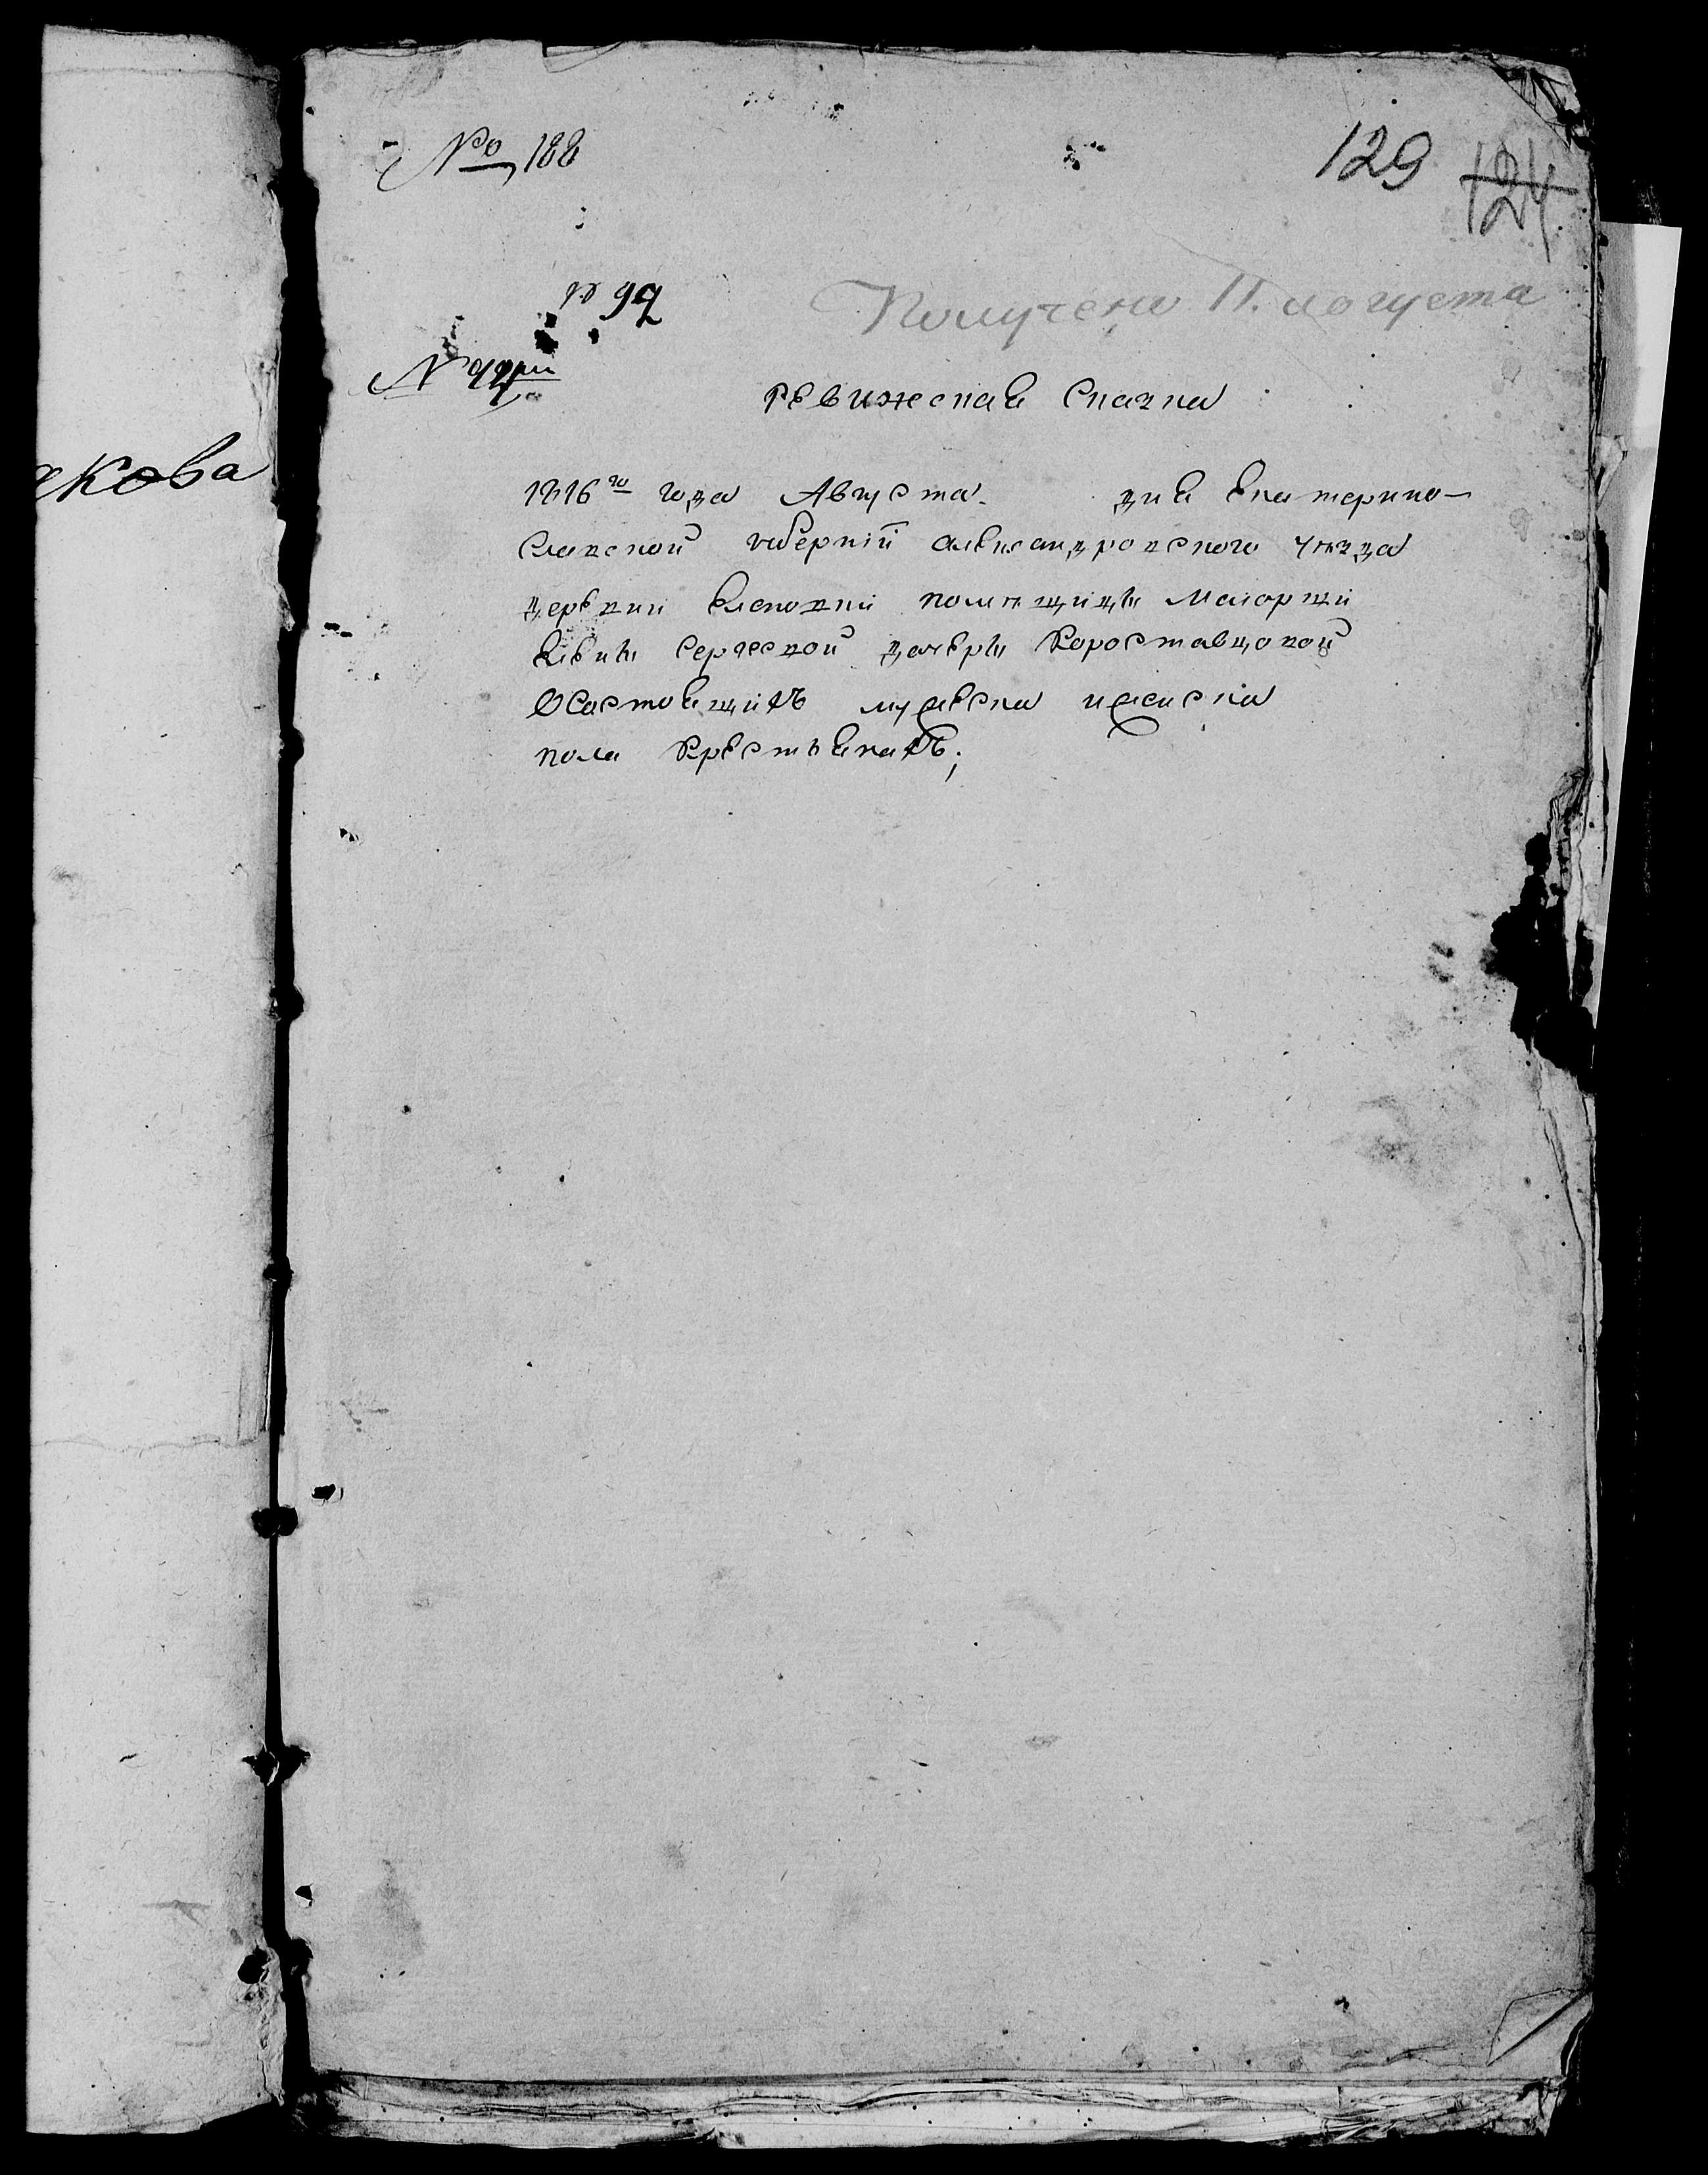 № 188
129 124
№ 92
Получено 11. августа
№ 44й
якова
Ревижская Сказка
1816го года Августа дня Екатерино-
Славской губернии александровского уезда
деревни помѣщицы Маиорши
Сергеевой дочери Коростовцовой
О Состоящихъ мужеска ижэнска
пола Крестьянахъ;